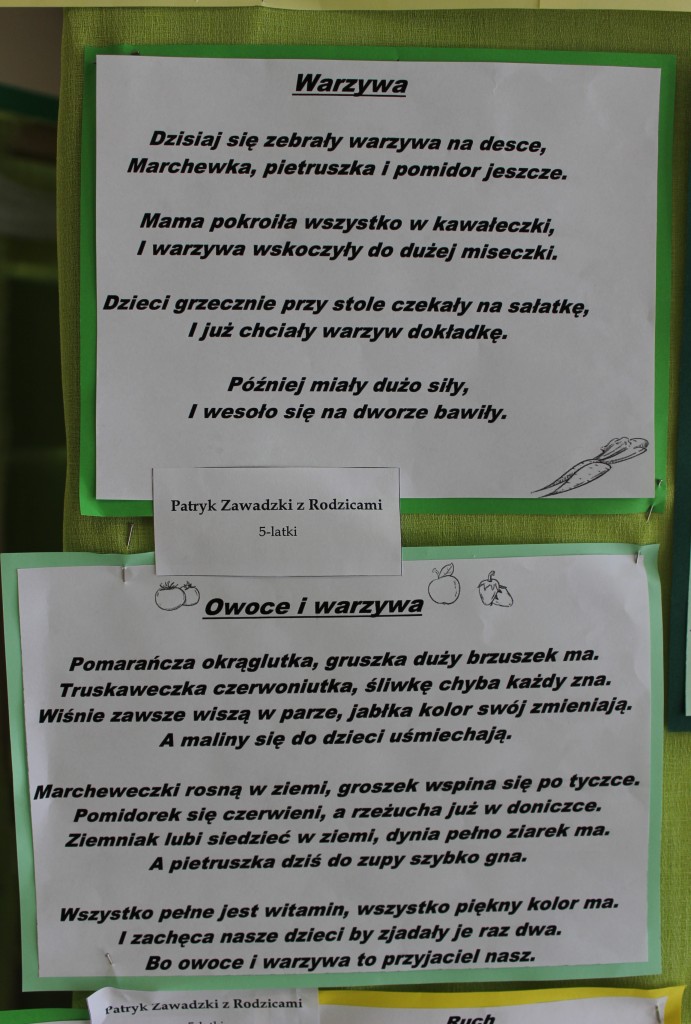 Warzywa
Dzisiaj się zebrały warzywa na desce,
Marchewka, pietruszka i pomidor jeszcze.
Mama pokroiła wszystko w kawałeczki,
I warzywa wskoczyły do dużej miseczki.
Dzieci grzecznie przy stole czekały na sałatkę,
I już chciały warzyw dokładkę.
Później miały dużo siły,
I wesoło się na dworze bawiły.
Patryk Zawadzki z Rodzicami
5-latki
Owoce i warzywa
Pomarańcza okrąglutka, gruszka duży brzuszek ma.
Truskaweczka czerwoniutka, śliwkę chyba każdy zna.
Wiśnie zawsze wiszą w parze, jabłka kolor swój zmieniają.
A maliny się do dzieci uśmiechają.
Marcheweczki rosną w ziemi, groszek wspina się po tyczce.
Pomidorek się czerwieni, a rzeżucha już w doniczce.
Ziemniak lubi siedzieć w ziemi, dynia pełno ziarek ma.
A pietruszka dziś do zupy szybko gna.
Wszystko pełne jest witamin, wszystko piękny kolor ma.
I zachęca nasze dzieci by zjadały je raz dwa.
Bo owoce i warzywa to przyjaciel nasz.
Patryk Zawadzki z Rodzicami
5-latki
Ruch